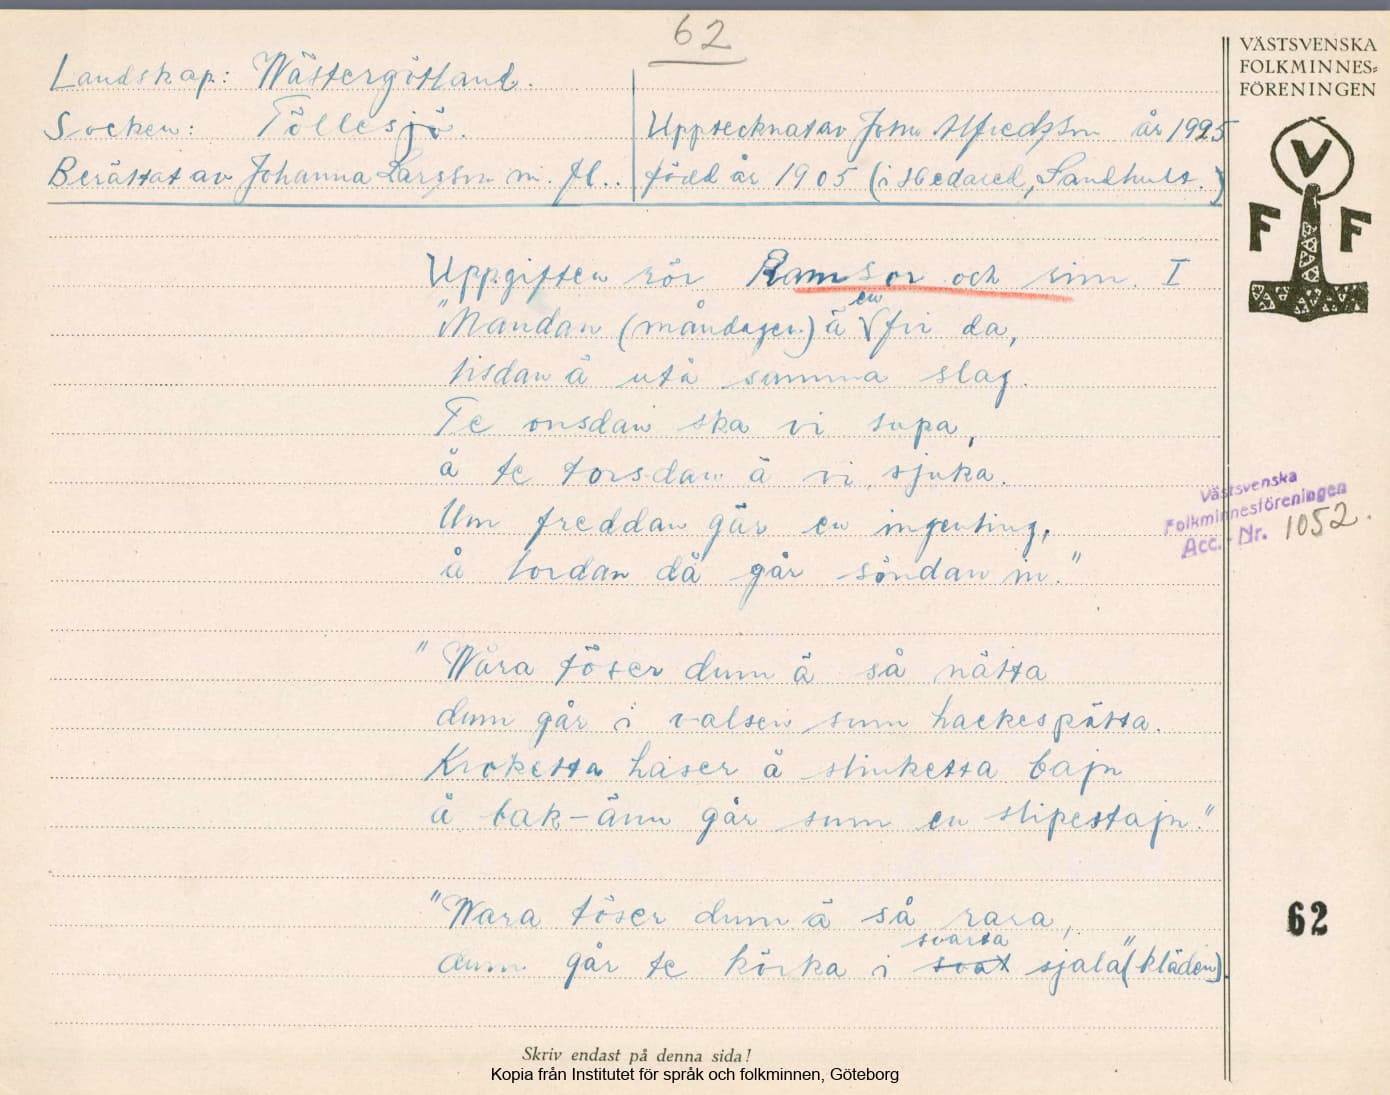 62
VÄSTSVENSKA
FOLKMINNES-
FÖRENINGEN
Landskap: Wästergötland.
Socken: Töllesjö.
Upptecknat av John Alfredzson år 1925
Berättat av Johanna Larsson m. fl..
född år 1905 (i Hedared, Sandhult.)
V
F F
Uppgiften rör Ramsor och rim. I
"Mandan (måndagen) ä en fir da,
tisdan ä utå samma slag.
Te onsdan ska vi supa,
å te torsdan ä vi sjuka.
Um freddan gär en ingenting,
å lordan då går söndan in."
"Wåra töser dum ä så nätta
dum går i valsen sum hackespätta.
Kroketta haser å slinketta bajn
å bak-änn går sum en slipestajn."
"Wara töser dum ä så rara,
dum går te körka i svarta sjala" (kläden).
Västsvenska
Folkminnesföreningen
Acc.-Nr. 1052.
62
Skriv endast på denna sida!
Kopia från Institutet för språk och folkminnen, Göteborg